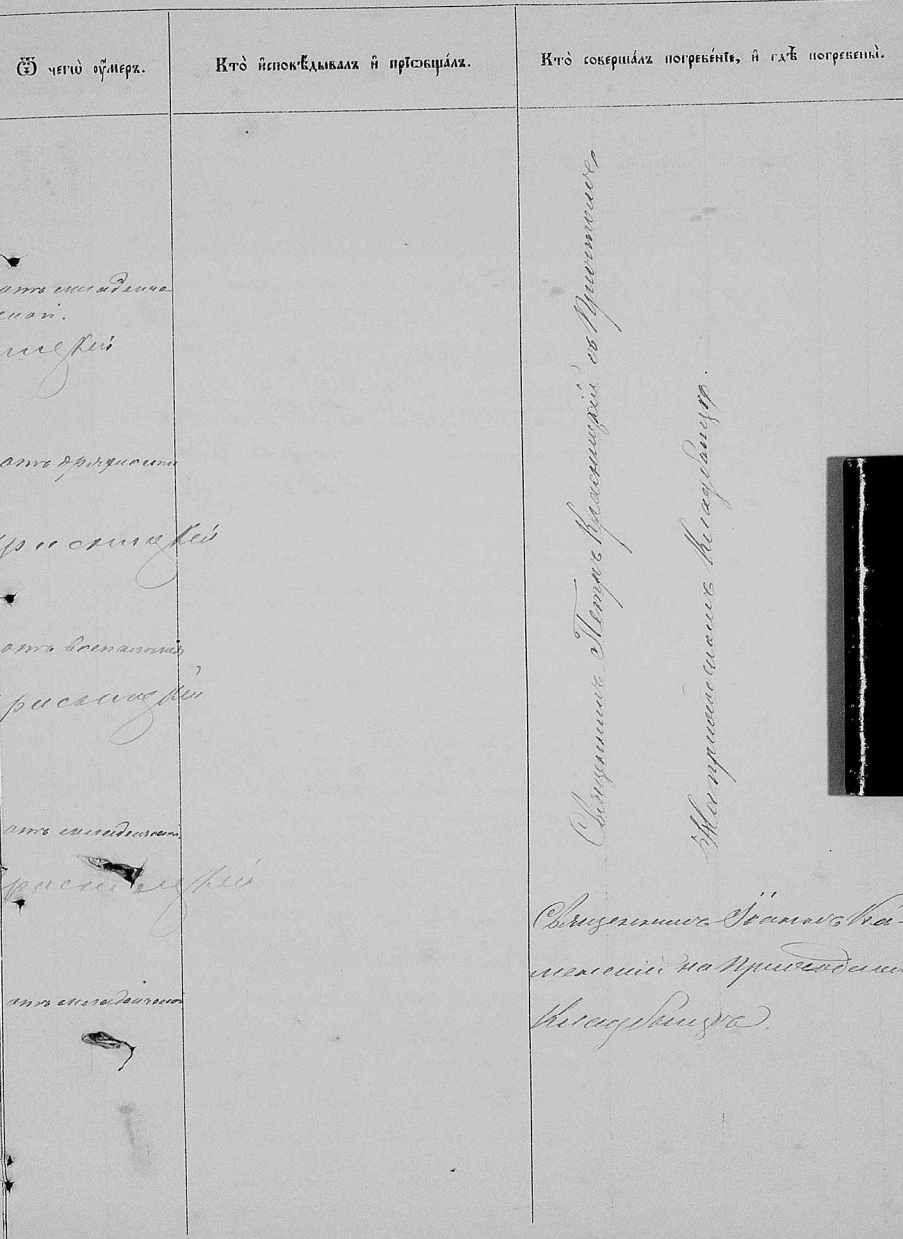 Ѿ чегѡ ᲂу҆́меръ.
Кто̀ и҆сповѣ́дывалъ и҆ прїѡбща́лъ.
Кто̀ соверша́лъ погребе́нїе, и҆ гдѣ̀ погребены̀.
отъ младенче-
ской.
отъ дряхлости
отъ воспаленія
отъ младенческой
отъ младенческой
Священникъ Петръ Красницкій съ Причтомъ
На приходскомъ Кладбищѣ.
Священникъ Іоаннъ Ка-
менскій на Приходскомъ
Кладбищѣ.